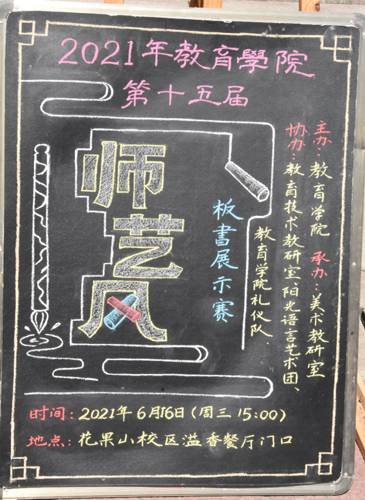 2021年教育學院
第十五届
师艺风
板書展示赛
主办：教育学院 承办：美术教研室
协办：教育技术教研室、阳光语言艺术团、
教育学院礼仪队、
时间：2021年6月16日（周三15:00）
地点：花果山校区溢香餐厅门口